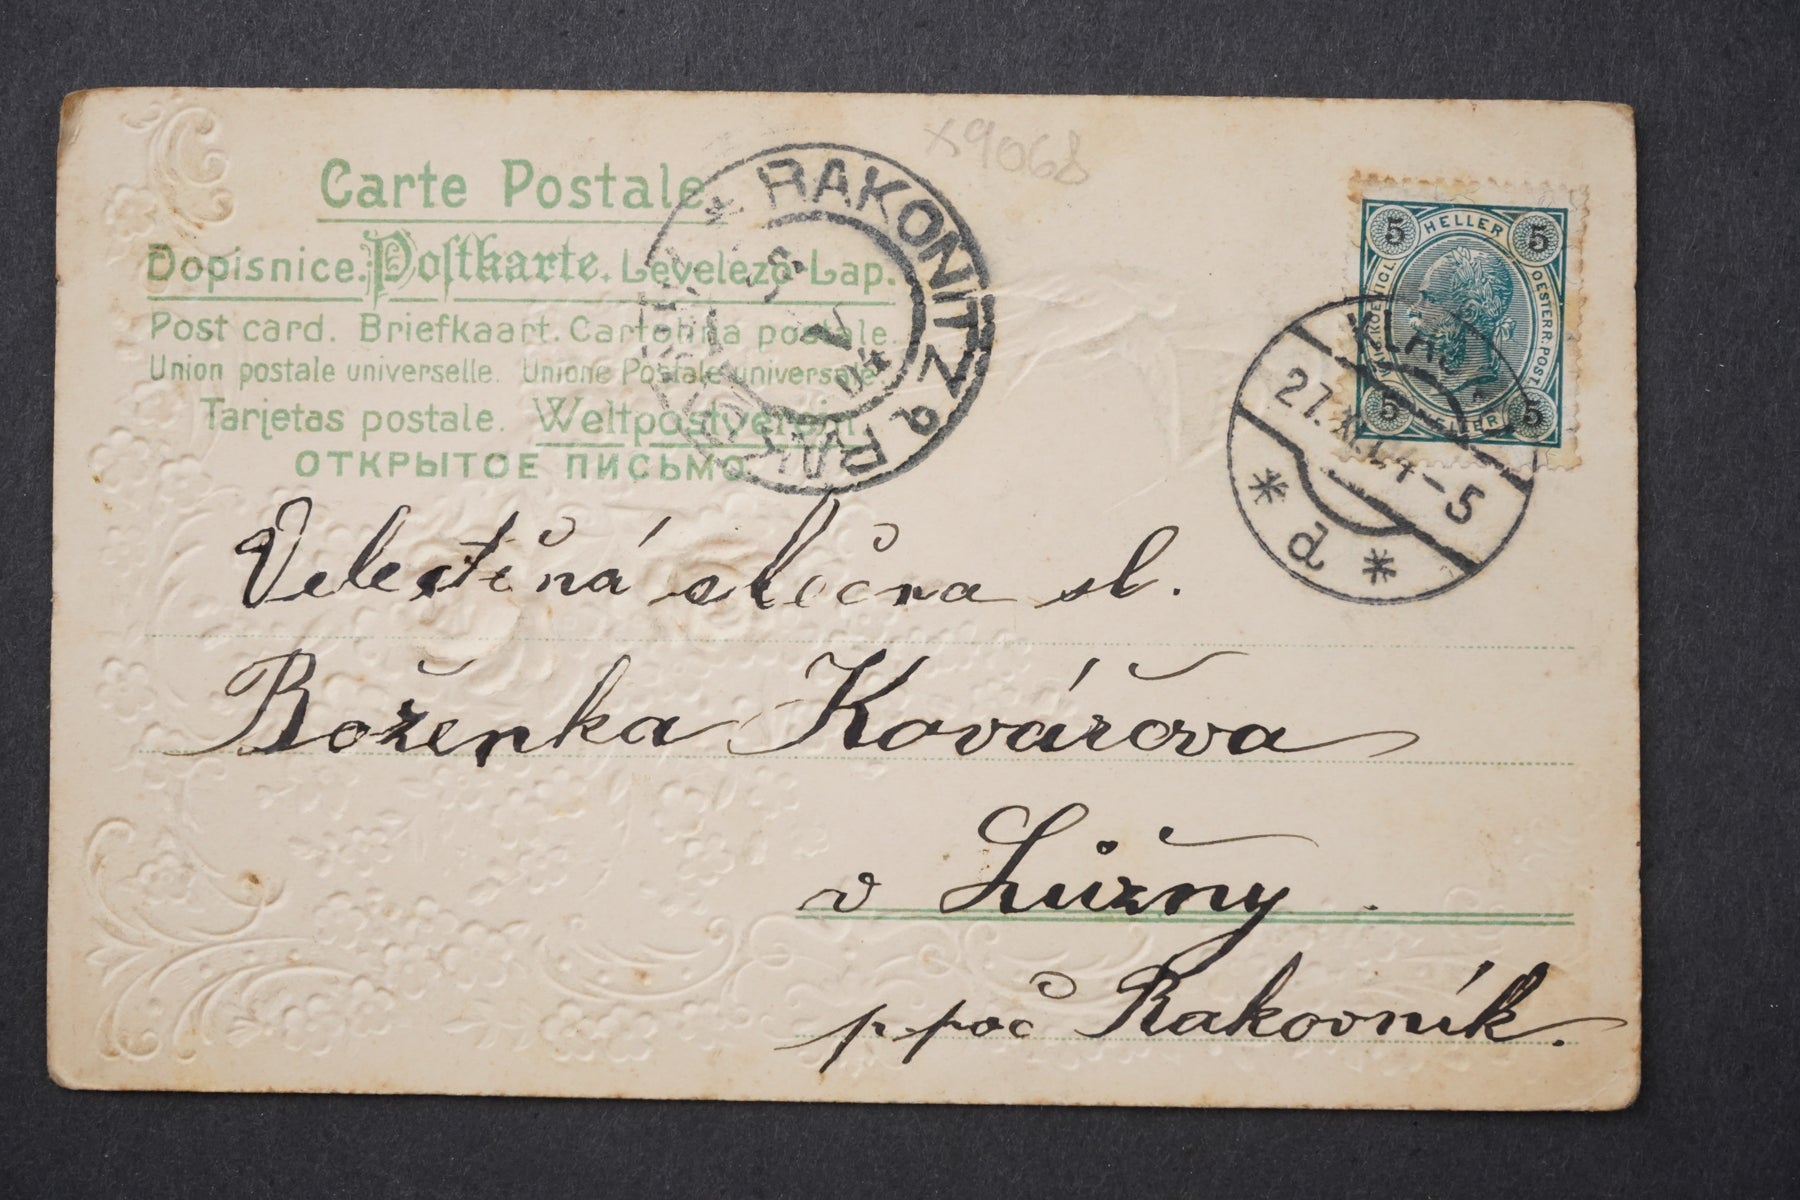 Carte Postale
Dopisnice. Postkarte. Levelező-Lap.
Post card. Briefkaart. Cartolina postale.
Union postale universelle. Unione Postale universale.
Tarjetas postale. Weltpostverein
ОТКРЫТОЕ ПИСЬМО
x9068
* RAKONITZ
5 HELLER 5
OESTERR. POST
5 HELLER 5
27.XI.04-5
* d *
Velectěná slečna sl.
Boženka Kovářova
v Lužny
p. poč Rakovník.